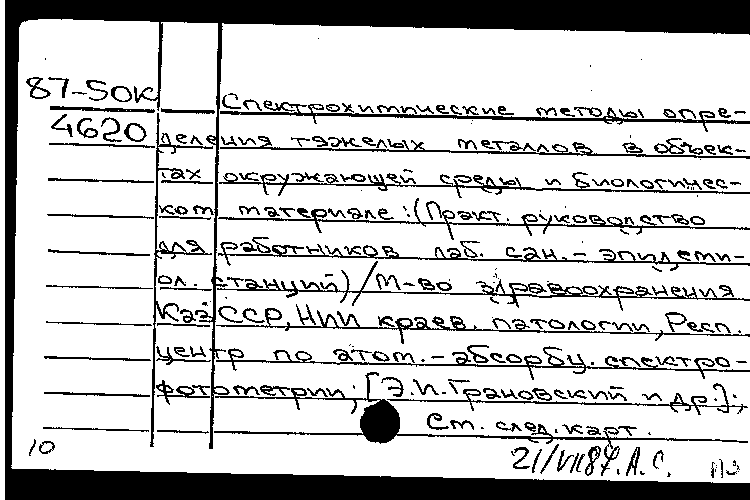 87-50К Спектрохимические методы опре-
4620 деления тяжелых металлов в объек-
тах окружающей среды и биологичес-
ком материале: (Практ. руководство
для работников лаб. сан.-эпидеми-
ол. станций)/М-во здравоохранения
КазССР, НИИ краев. патологии, Респ.
центр по атом.-абсорбц. спектро-
фотометрии; [Э.И.Грановский и др.];
См. след. карт.
10 21/VII87. А.С.